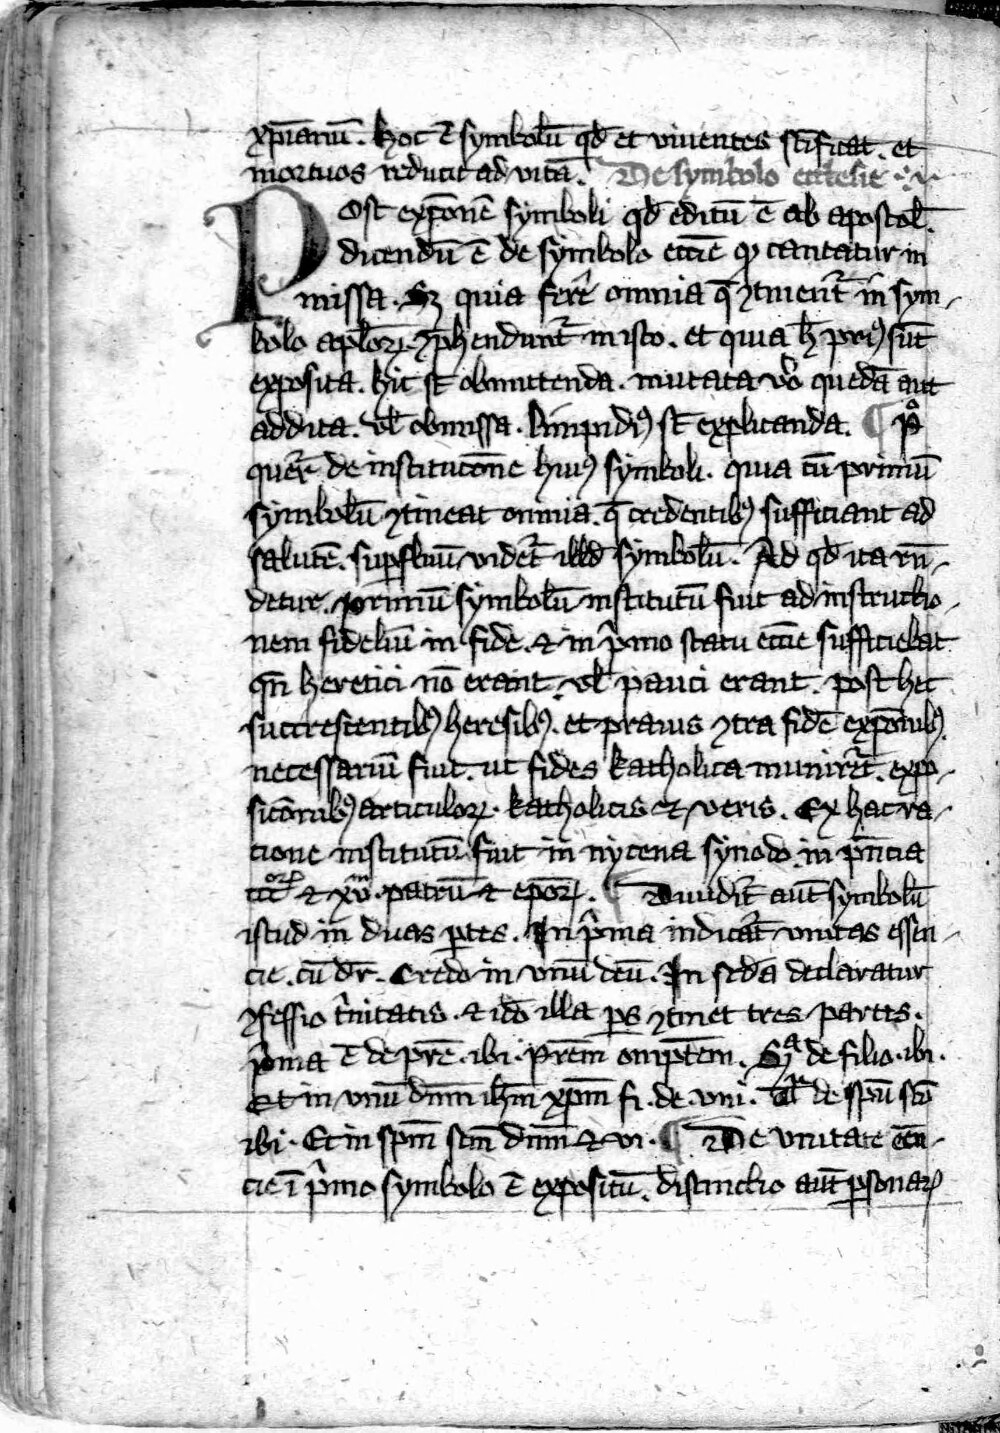 xp̅ianũ. hoc ē symbolũ qd̅ et viventes sc̅ificat. et
mortuos reducit ad vitã. De symbolo ecclesie
Post expo̅nē symboli qd̅ editũ ē ab apostol̅.
dicendũ ē de symbolo ecc̅ie qꝫ cantatur in
missa. Sꝫ quia fere̅ omnia q̅ ꝯtinent̃ in sym-
bolo apl̅oꝝ. ꝯp̅hendunt̃ in isto. et quia h̅ priꝰ su̅t
exposita. hic st̅ obmittenda. mutata v̅o quedã aut
addita. vl̅ obmissa. limpidiꝰ st̅ explicanda. ¶ Pͦ
quer̃ de institutio̅ne huiꝰ symboli. quia cũ primũ
symbolũ ꝯtineat omnia. q̅ credentibꝰ sufficiant ad
salutē. supfluũ videt̃ illd̅ symbolũ. Ad qd̅ ita rn̅-
detur. primũ symbolũ institutũ fuit ad instructio-
nem fideliũ in fide. ⁊ in p̍mo statu ecc̅ie sufficiebat
qn̅ heretici nō erant. vl̅ pauci erant. post hec
succrescentibꝰ heresibꝰ. et pravis ꝯtra fidē expo̅nibꝰ.
necessariũ fuit. ut fides katholica muniret̃. expo-
sicio̅nibꝰ articuloꝝ. katholicis ⁊ veris. Ex hac ra-
cione institutũ fuit in nycena synodo in p̅n̅cia
ccc̅oꝝ ⁊ xviii patrũ ⁊ epo̅ꝝ. ¶ Dividit̃ aut̅ symbolũ
istud in duas p̲tes. In p̍ma indicat̃ unitas essen-
cie. cũ dr̅. Credo in unũ deũ. In sec̅da declaratur
ꝯfessio t̍nitatis. ⁊ id̅o illa p̲s ꝯtinet tres partes.
p̍ma ē de pr̅e. ibi. Pr̅em om̅pt̅em. Sͣ de filio. ibi.
Et in unũ dn̅m ih̅m xp̅m fi. de. vni. de sp̅u sc̅o
ibi. Et in sp̅m sc̅m dn̅m ⁊ vi. ¶ De unitate ee̅n-
cie ĩ p̍mo symbolo ē expositũ. distinctio aut̅ p̲sonaꝝ